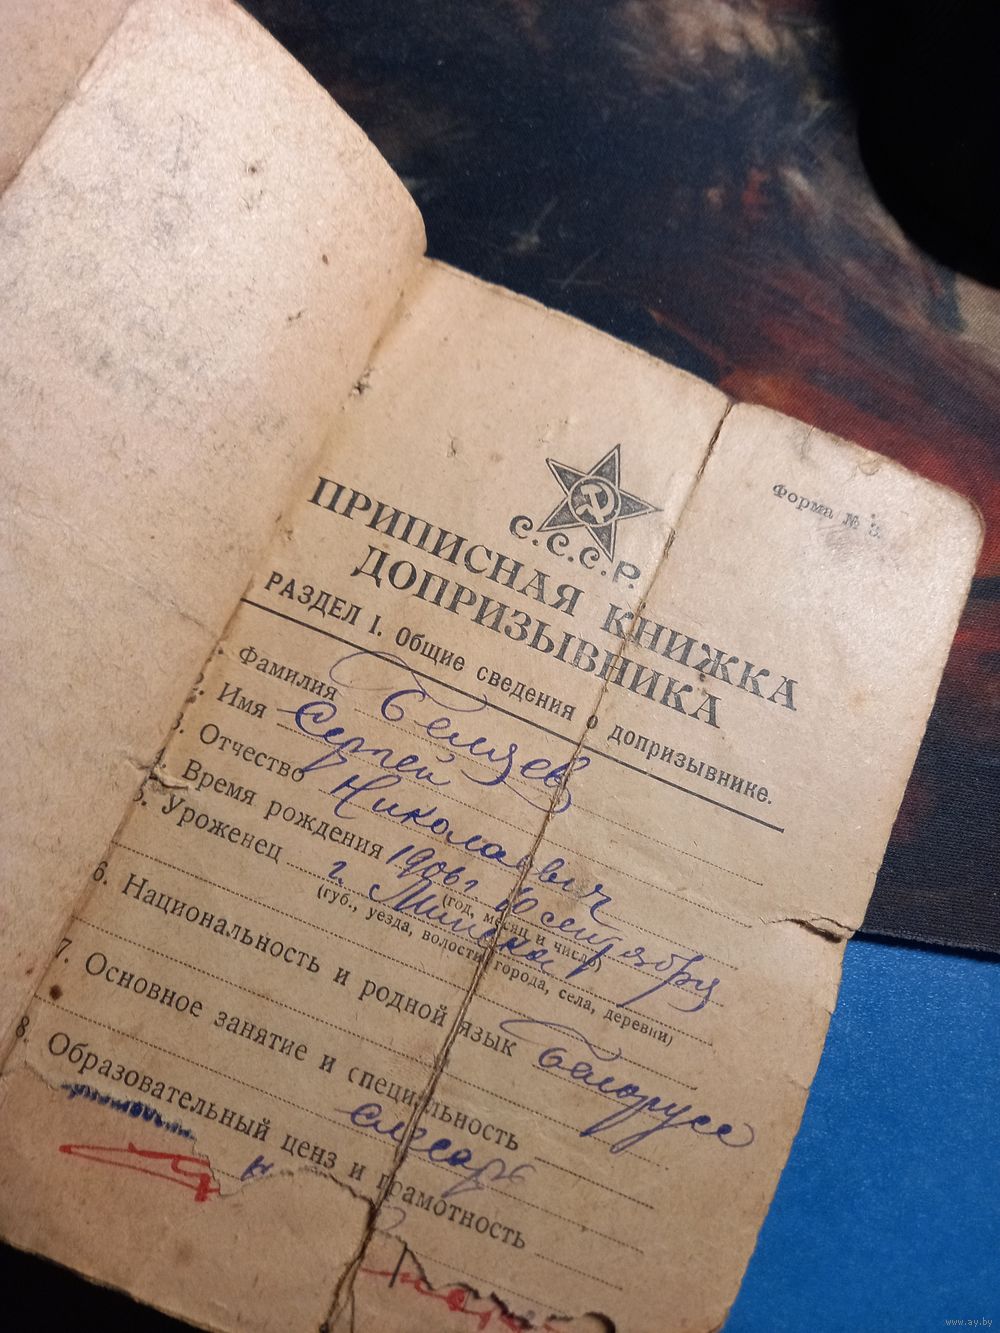 Форма № 3.
С.С.С.Р.
ПРИПИСНАЯ КНИЖКА
ДОПРИЗЫВНИКА
РАЗДЕЛ I. Общие сведения о допризывнике.
Фамилия Беляев
Имя Сергей
3. Отчество Николаевич
Время рождения 1906 г 10 сентября
(год, месяц и число)
5. Уроженец г. Минска
(губ., уезда, волости, города, села, деревни)
6. Национальность и родной язык белорусс
7. Основное занятие и специальность
слесарь
8. Образовательный ценз и грамотность
www.ay.by